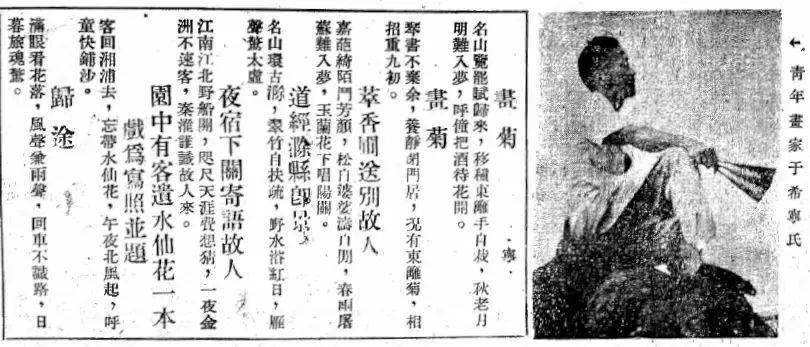 ←青年畫家于希寧氏
畫菊 ·寧·
名山覽罷賦歸來，移種東籬手自栽，秋老月
明難入夢，呼僮把酒待花開。
畫菊
琴書不棄余，養靜閉門居，況有東離菊，相
招重九初。
萃香園送別故人
嘉葩綺陌鬥芳顏，松自婆娑濤自閒，春雨屠
蘇難入夢，玉蘭花下唱陽關。
道經滁縣即景
名山環古滁，翠竹自扶疏，野水浴紅日，雁
聲驚太虛。
夜宿下關寄語故人
江南江北野船開，咫尺天涯費想猜，一夜金
洲不速客，秦淮誰識故人來。
園中有客遺水仙花一本
戲爲寫照並題
客回湘浦去，忘帶水仙花，午夜北風起，呼
童快鋪沙。
歸途
滿眼看花落，風聲兼雨聲，回車不識路，日
暮旅魂驚。